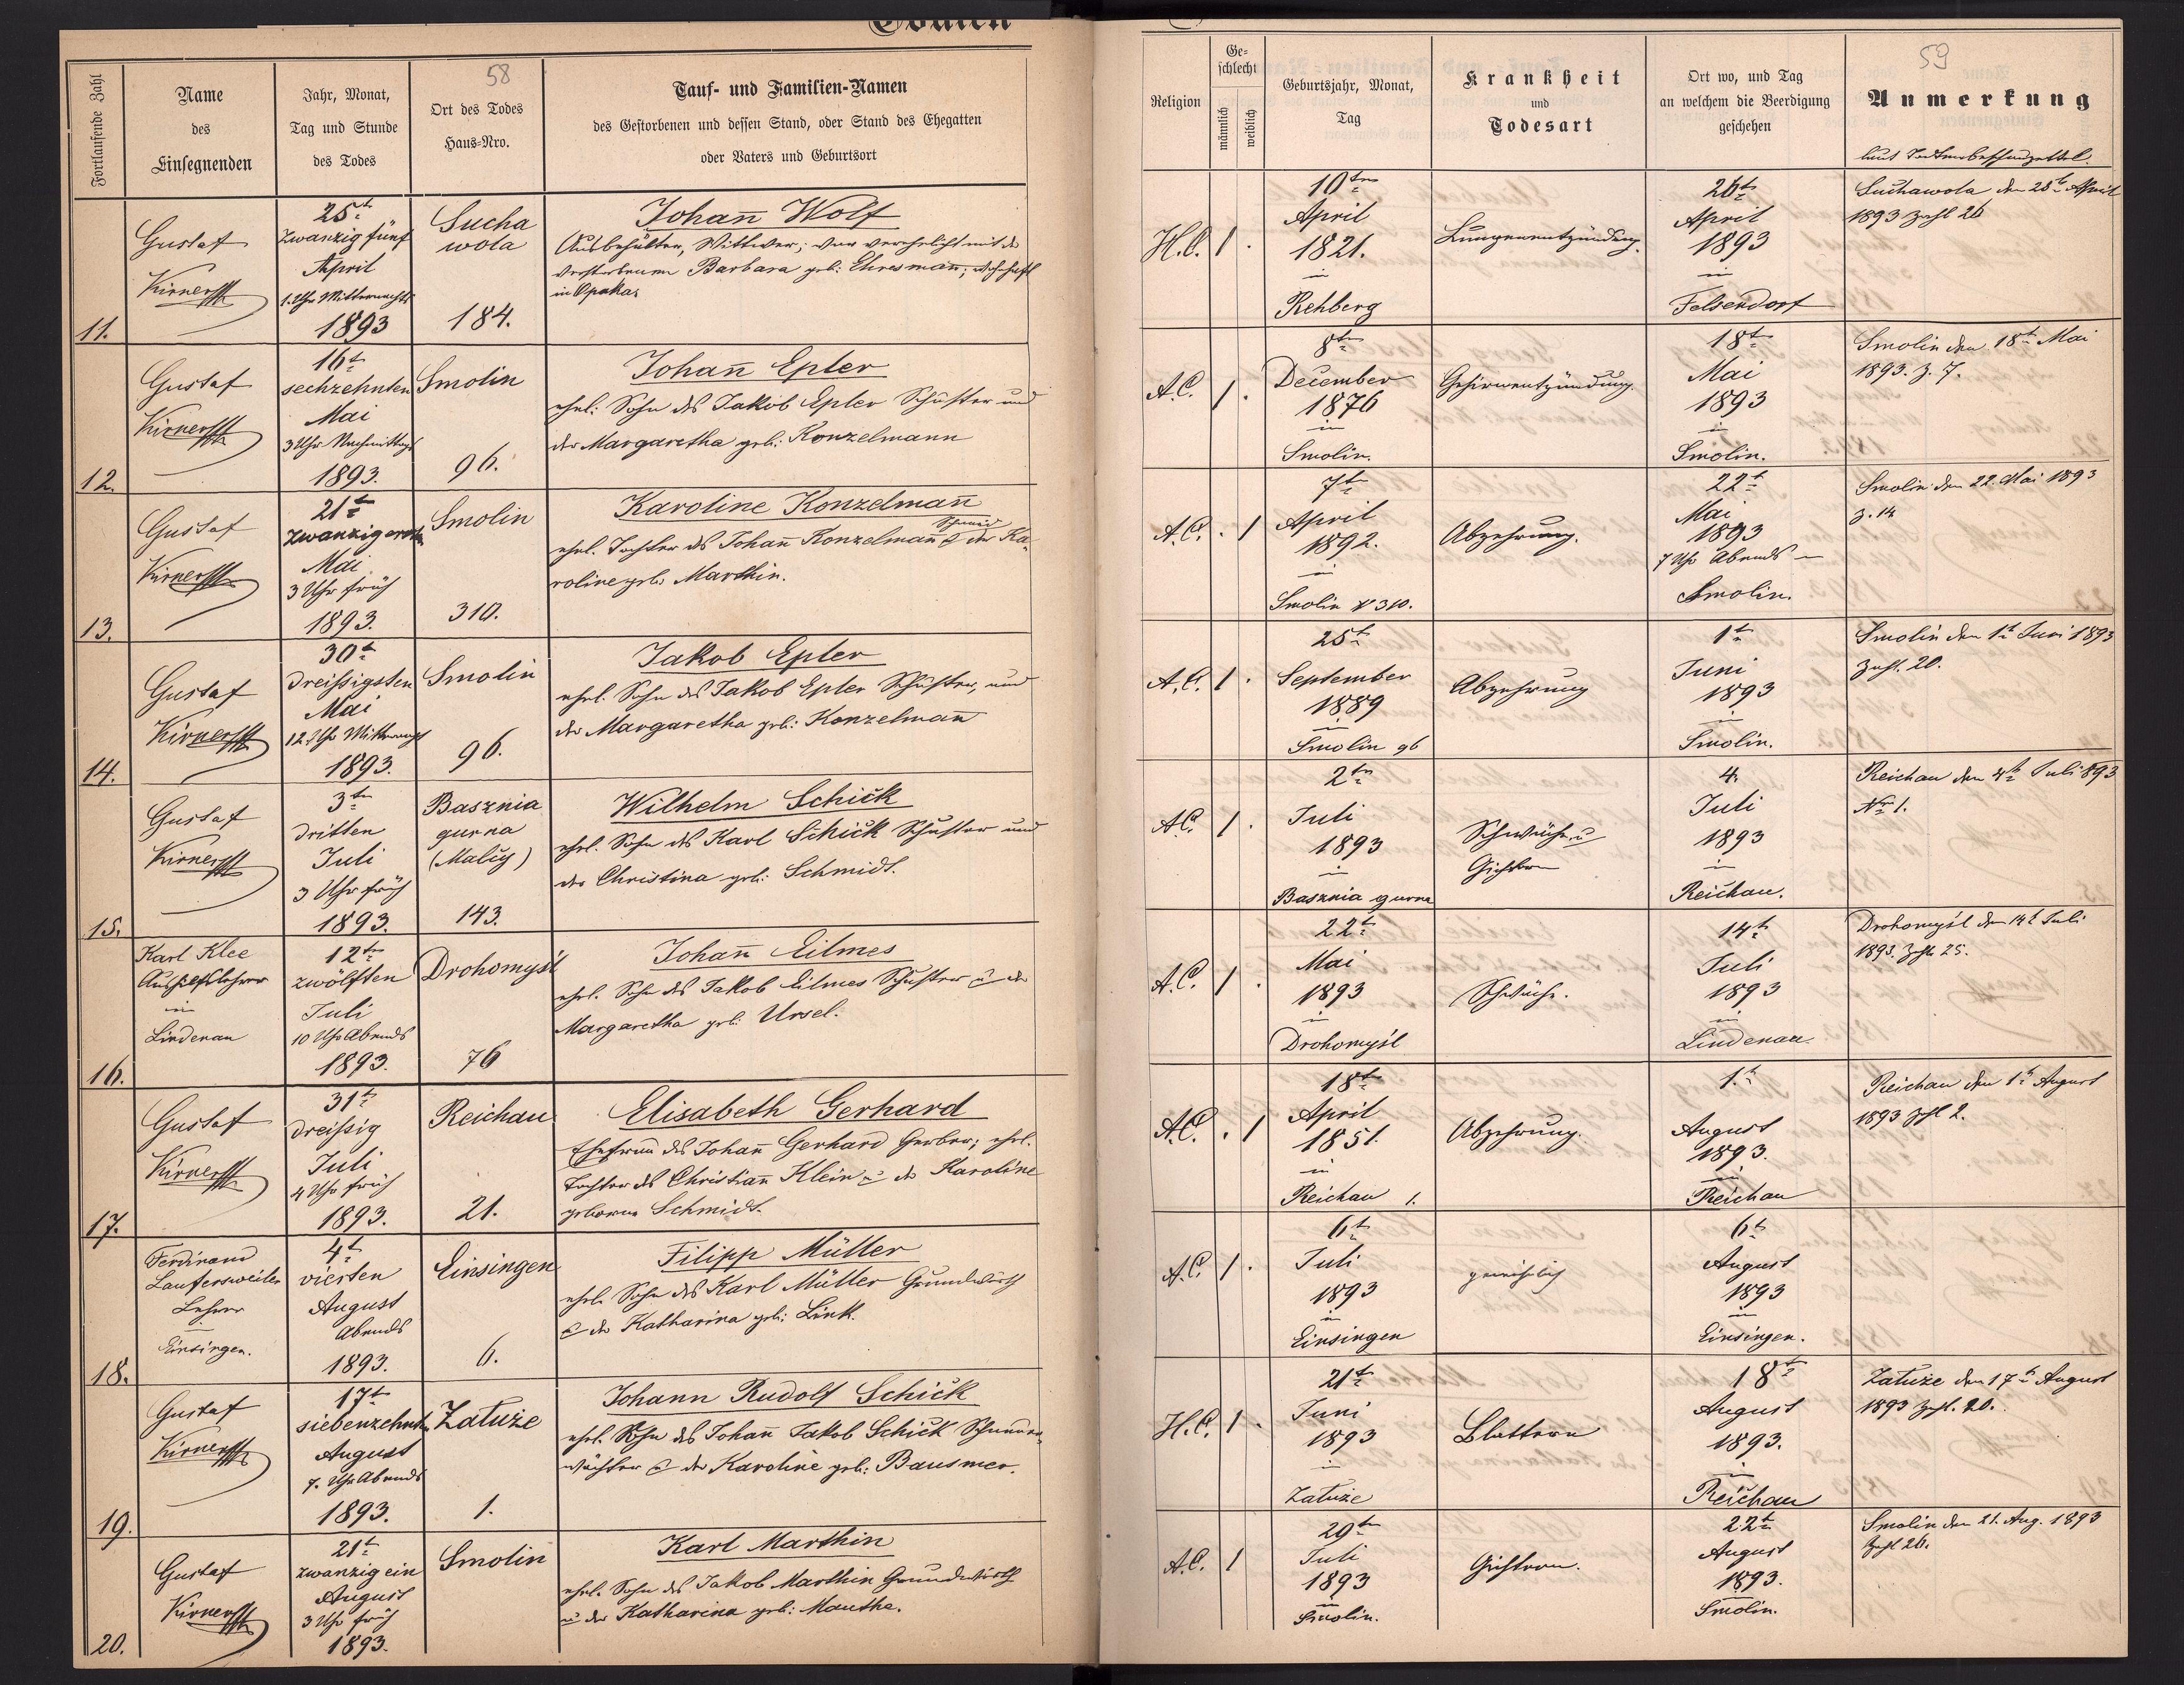 58
Fortlaufende Zahl
Name
des
Einsegnenden
Jahr, Monat,
Tag und Stunde
des Todes
Ort des Todes
Haus-Nro.
Tauf- und Familien-Namen
des Gestorbenen und dessen Stand, oder Stand des Ehegatten
oder Vaters und Geburtsort
11.
Gustaf
Kirner
25t
zwanzig fünf
April
1. Uhr Mitternachts
1893
Sucha
wola
184.
Johan̄ Wolf
Ausbehälter, Wittwer; war verehelicht mit der
verstorbenen Barbara geb: Ehresman̄; wohnhaft
in Opaka.
12.
Gustaf
Kirner
16t
sechzehnten
Mai
3 Uhr Nachmittags
1893.
Smolin
96.
Johan̄ Epler
ehel: Sohn des Jakob Epler Schuster und
der Margaretha geb: Konzelmann
13.
Gustaf
Kirner
21t
zwanzigersten
Mai
3 Uhr früh
1893.
Smolin
310.
Karoline Konzelman̄
ehel. Tochter des Johan̄ Konzelman̄ & der Ka-
roline geb: Marthin.
14.
Gustaf
Kirner
30t
dreißigsten
Mai
12. Uhr Mitternachts
1893.
Smolin
96.
Jakob Epler
ehel. Sohn des Jakob Epler Schuster, und
der Margaretha geb: Konzelman̄
15.
Gustaf
Kirner
3ten
dritten
Juli
3 Uhr früh
1893.
Basznia
gurna
(Maluy)
143.
Wilhelm Schick
ehel. Sohn des Karl Schick Schuster und
der Christina geb: Schmidt.
16.
Karl Klee
Aushilfslehrer
in
Lindenau
12ten
zwölften
Juli
10 Uhr Abends
1893.
Drohomyśl
76
Johan̄ Eilmes
ehel. Sohn des Jakob Eilmes Schuster u der
Margaretha geb: Ursel.
17.
Gustaf
Kirner
31t
dreißig
Juli
4 Uhr früh
1893.
Reichau
21.
Elisabeth Gerhard
Ehefrau des Johan̄ Gerhard Gerber; ehel.
Tochter des Christian̄ Klein u der Karoline
geborene Schmidt.
18.
Ferdinand
Laufersweiler
Lehrer
Einsingen.
4t
vierten
August
Abends
1893.
Einsingen
6.
Filipp Müller
ehel. Sohn des Karl Müller Grundwirth
& der Katharina geb: Link.
19.
Gustaf
Kirner
17t
siebenzehnten
August
7. Uhr Abends
1893.
Załuże
1.
Johann Rudolf Schick
ehel. Sohn des Johan Jakob Schick
wächter & der Karoline geb: Bausmer.
20.
Gustaf
Kirner
21t
zwanzig ein
August
3 Uhr früh
1893.
Smolin
Karl Marthin
ehel. Sohn des Jakob Marthin Grundwirth
u der Katharina geb: Mauthe.
59
Religion
Ge-
schlecht
männlich
weiblich
Geburtsjahr, Monat,
Tag
Krankheit
und
Todesart
Ort wo, und Tag
an welchem die Beerdigung
geschehen
Anmerkung
laut Todtenbeschauzettel.
H.C.
1 .
10ten
April
1821.
in
Rehberg
Lungenentzündung.
26t
April
1893
in
Felsendorf
Suchawola den 28t April
1893 Zahl 26
A.C.
1 .
8ten
December
1876
in
Smolin.
Gehirnentzündung.
18t
Mai
1893
in
Smolin.
Smolin den 18t Mai
1893. Z. 7.
A.C.
. 1
7t
April
1892.
in
Smolin N 310.
Abzehrung.
22t
Mai
1893
7 Uhr Abends in
Smolin.
Smolin den 22. Mai 1893
Z. 14
A.C.
1 .
25t
September
1889
in
Smolin 96
Abzehrung
1t
Juni
1893
in
Smolin.
Smolin den 1t Juni 1893
Zahl. 20.
A.C.
1 .
2ten
Juli
1893
in
Basznia gurna
Schwäche u
Gichtern
4.
Juli
1893
in
Reichau.
Reichau den 4t Juli 893
Nr 1.
A.C.
1 .
22t
Mai
1893
in
Drohomyśl
Schwäche.
14t
Juli
1893
in
Lindenau
Drohomyśl den 14t Juli
1893. Zahl 25.
A.C.
. 1
18ten
April
1851.
in
Reichau 1.
Abzehrung.
1.t
August
1893.
in
Reichau
Reichau den 1t August
1893 Zhl 2.
A.C.
1 .
6t
Juli
1893
in
Einsingen
6t
August
1893
in
Einsingen.
H.C.
1 .
21t
Juni
1893
in
Załuże
Blattern
18t
August
1893.
in
Reichau
Załuże den 17t August
1893 Zhl. 20.
A.C.
1
29ten
Juli
1893
in
Smolin.
Gichtern.
22t
August
1893.
Smolin.
Smolin den 21. Aug. 1893
Zahl 26.